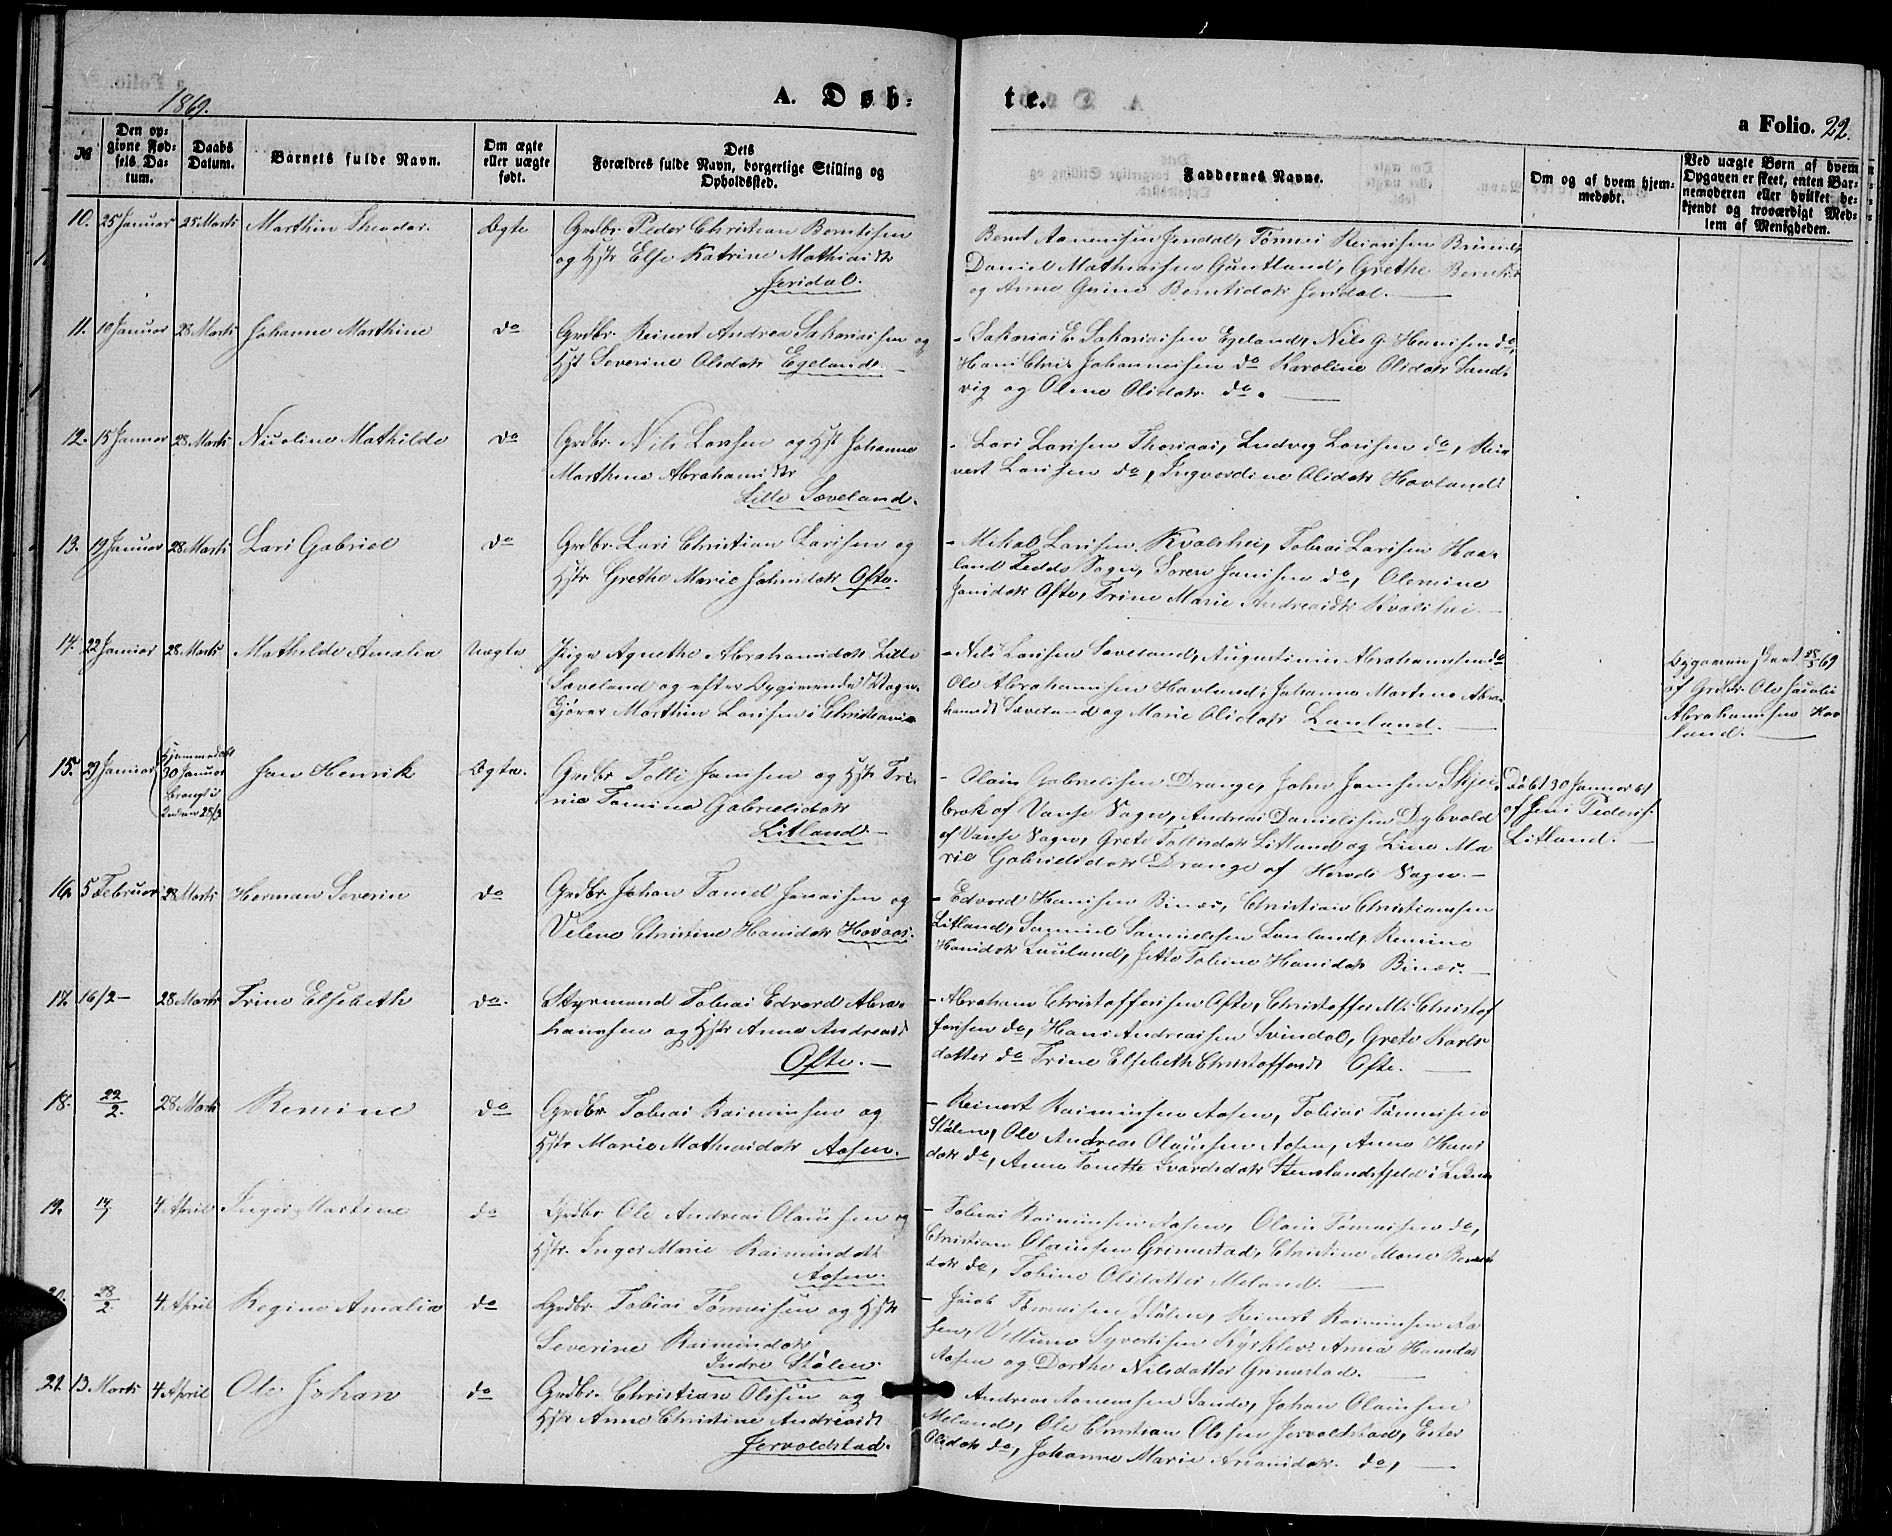 1869.
A. Døb-
te.
a Folio. 22.
№
Den op-
givne Fød-
sels Da-
tum.
Daabs
Datum.
Barnets fulde Navn.
Om ægte
eller uægte
født.
Dets
Forældres fulde Navn, borgerlige Stilling og
Opholdssted.
Faddernes Navne.
Om og af hvem hjem-
medøbt.
Ved uægte Børn af hvem
Opgaven er skeet, enten Bar-
nemoderen eller hvilket be-
kjendt og troværdigt Med-
lem af Menigheden.
10. 25 Januar 25 Marts Marthin Theodor. Ægte Grdbr. Peder Christian Berntsen
og Hstr Else Katrine Mathiasdtr
Jerdal.
Bernt Aanensen Jerdal, Tønnes Reiersen
Daniel Mathiassen Grintland, Grethe Berntsdtr
og Anne Gurine Berntsdatr Jerdal.
11. 10 Januar 28 Marts Johanne Marthine do Grdbr. Reinert Andreas Sakariassen og
Hst Severine Olsdatr Egeland
- Sakarias E. Sakariassen Egeland, Nils G. Hansen do,
Hans Chr. Johannessen do Karoline Olsdatr Sand-
vig og Oline Olsdatr do.
12. 15 Januar 28 Marts Nicoline Mathilde do Grdbr. Nils Larssen og Hstr Johanne
Marthine Abrahamsdtr
Lille Sæveland.
- Lars Larssen Thorsaas, Ludvig Larssen do, Rein-
vert Larssen do, Ingvordine Olsdatr Hovland.
13. 19 Januar 28 Marts Lars Gabriel do Grdbr. Lars Christian Larssen og
Hstr. Grethe Marie Jahnsdatr Ofte.
- Mikal Larssen Kvalshei, Tobias Larssen Haa-
land Fedde Sogn, Søren Jansen do, Olemine
Jansdatr Ofte, Trine Marie Andreasdtr Kvalshei
14. 22 Januar 28 Marts Mathilde Amalia Uægte Pige Agnethe Abrahamsdatr Lille
Sæveland og efter Opgivende Vogn-
kjører Marthin Larssen i Christiania
- Nils Larssen Sæveland, Augustinus Abrahamsen do
Ole Abrahamsen Hovland, Johanne Martine Abra-
hamsdt Sæveland og Marie Olsdatr Lauland.
Opgaven skeet 28/3 69
af Grdbr. Ole Jacob
Abrahamsen Hov-
land.
15. 29 Januar Hjemmedøbt
30 Januar
bragt i
Kirken 28/3
Jan Henrik Ægte. Grdbr Tolli Jansen og Hstr Tri-
ne Tomine Gabrielsdatr
Litland
- Olaus Gabrielsen Drange, John Jansen Skjei-
brok af Vanse Sogn, Andreas Danielsen Dybvold
af Vanse Sogn, Grete Tollisdatr Litland og Line Ma-
rie Gabrielsdatr Drange af Herads Sogn.
Døbt 30 Januar 69
af Jens Pedersen
Litland.
16. 5 Februar 28 Marts Herman Severin do Grdbr. Johan Tomel Jonassen og
Velene Christine Hansdatr Hovaas.
- Edvard Hansen Birnes, Christian Christiansen
Litland, Samuel Samuelsen Lauland, Remine
Hansdatr Lauland, Jette Tobine Hansdatr Birnes.
17. 16/2 28 Marts Trine Elsebeth do. Styrmand Tobias Edvard Abra-
hamsen og Hstr Anne Andreasdt
Ofte.
- Abraham Christoffersen Ofte, Christoffer M. Christof-
fersen do, Hans Andreassen Svindal, Grete Karls-
datter do Trine Elsebeth Christoffersdt Ofte.
18. 22/2. 28 Marts Remine do Grdbr. Tobias Rasmussen og
Hstr Marie Mathiasdatr Aasen.
- Reinert Rasmussen Aasen, Tobias Tønnessen
Stølen, Ole Andreas Olaussen Aasen, Anne Hans-
datr do, Anne Tonette Ivarsdatr Stenslandsfjeld i Lekne
19. 14/1 4 April Inger Martine do Grdbr. Ole Andreas Olaussen og
Hstr. Inger Marie Rasmusdatt
Aasen.
- Tobias Rasmussen Aasen, Olaus Tønnessen do,
Christian Olaussen Grimestad, Christine Marie Bernts-
datr do, Tobine Olsdatter Meland.
20. 28/2 4 April Regine Amalia do Grdbr. Tobias Tønnessen og Hstr
Severine Rasmusdatr
Indre Stølen.
- Jacob Tønnessen Stølen, Reinert Rasmussen Aa-
sen, Villum Syvertsen Anna Hansdat
Aasen og Dorthe Nilsdatter Grimestad.
21. 13 Marts 4 April Ole Johan do Grdbr. Christian Olsen og
Hstr Anne Christine Andreasdt
Jervoldstad.
Andreas Aanensen Sande, Johan Olaussen
Meland, Ole Christian Olsen Jervoldstad, Ester
Olsdatr do, Johanne Marie Ananiasdatr. do,